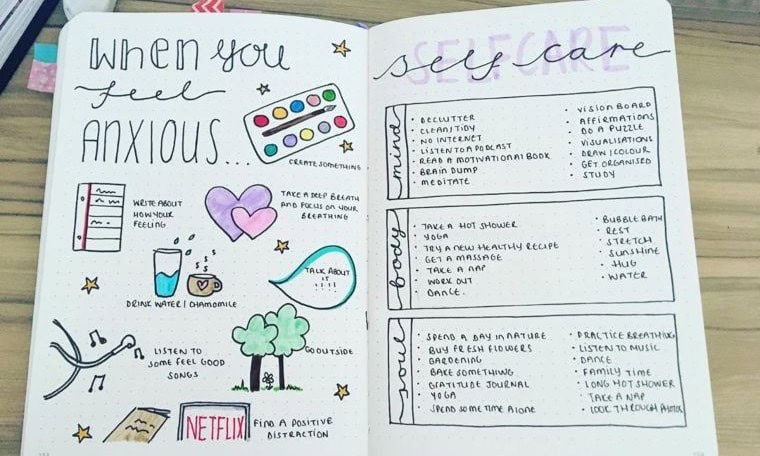 WHEN YOU
feel
ANXIOUS...
CREATE SOMETHING
WRITE ABOUT
HOW YOUR
FEELING
TAKE A DEEP BREATH
AND FOCUS ON YOUR
BREATHING
DRINK WATER / CHAMOMILE
TALK ABOUT
IT
!!!!
LISTEN TO
SOME FEEL GOOD
SONGS
GO OUTSIDE
NETFLIX
FIND A POSITIVE
DISTRACTION
SELFCARE
self care
mind
• DECLUTTER
• CLEAN/TIDY
• NO INTERNET
• LISTEN TO A PODCAST
• READ A MOTIVATIONAL BOOK
• BRAIN DUMP
• MEDITATE
• VISION BOARD
• AFFIRMATIONS
• DO A PUZZLE
• VISUALISATIONS
• DRAW/COLOUR
• GET ORGANISED
• STUDY
body
• TAKE A HOT SHOWER
• YOGA
• TRY A NEW HEALTHY RECIPE
• GET A MASSAGE
• TAKE A NAP
• WORK OUT
• DANCE.
• BUBBLE BATH
• REST
• STRETCH
• SUNSHINE
• HUG
• WATER
soul
• SPEND A DAY IN NATURE
• BUY FRESH FLOWERS
• GARDENING
• BAKE SOMETHING
• GRATITUDE JOURNAL
• YOGA
• SPEND SOME TIME ALONE
• PRACTICE BREATHING
• LISTEN TO MUSIC
• DANCE
• FAMILY TIME
• LONG HOT SHOWER
• TAKE A NAP
• LOOK THROUGH PHOTOS